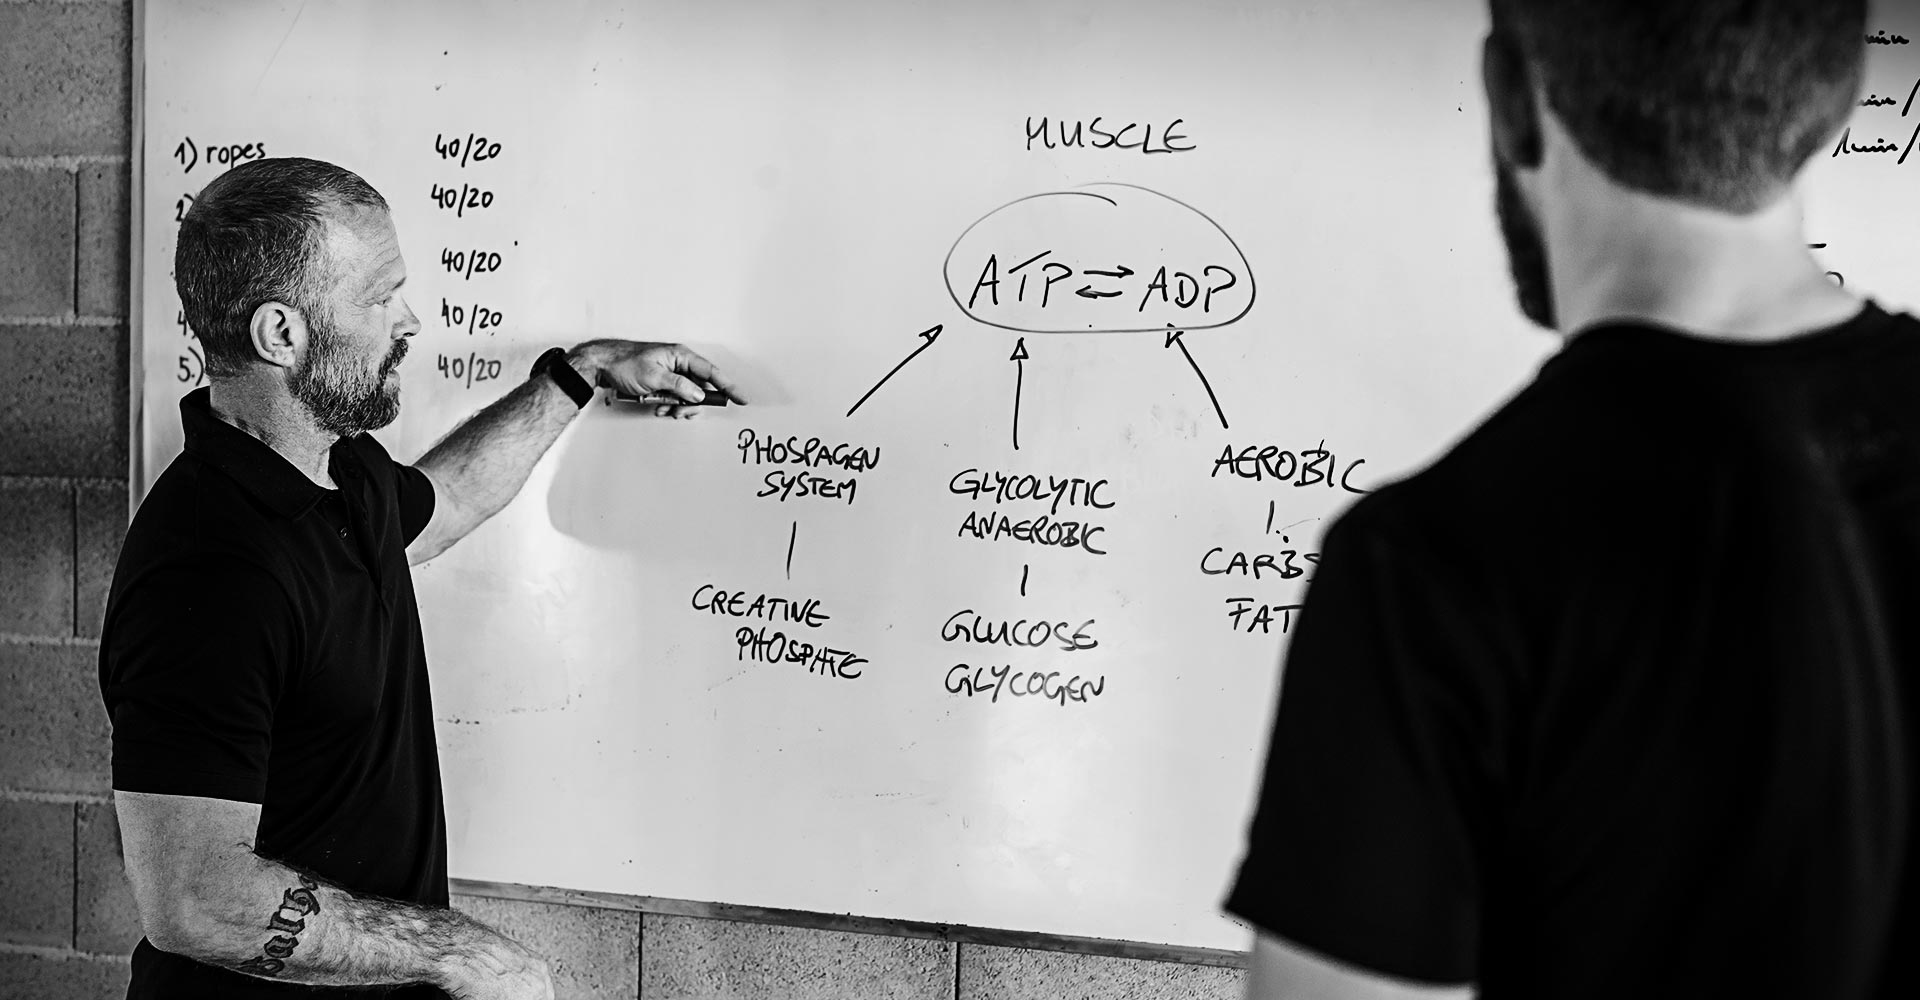 1) ropes 40/20
2) 40/20
40/20
4. 40/20
5.) 40/20
MUSCLE
ATP ⇄ ADP
PHOSPAGEN
SYSTEM
CREATINE
PHOSPHTE
GLYCOLYTIC
ANAEROBIC
GLUCOSE
GLYCOGEN
AEROBIC
CARBS
FAT